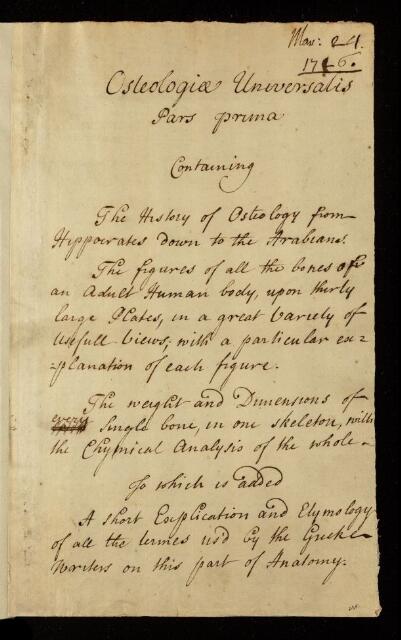 Mar: 24.
1726.
Osteologiæ Universalis
Pars prima
Containing
The History of Osteology from
Hippocrates down to the Arabeans.
The figures of all the bones of
an Adult Human body, upon thirty
large Plates, in a great Variety of
Usefull Views, with a particular ex=
=planation of each figure.
The weight and Dimensions of
every Single bone, in one skeleton, with
the Chymical Analysis of the whole
To which is added
A short Explication and Etymology
of all the termes us'd by the Greeke
Writers on this part of Anatomy.